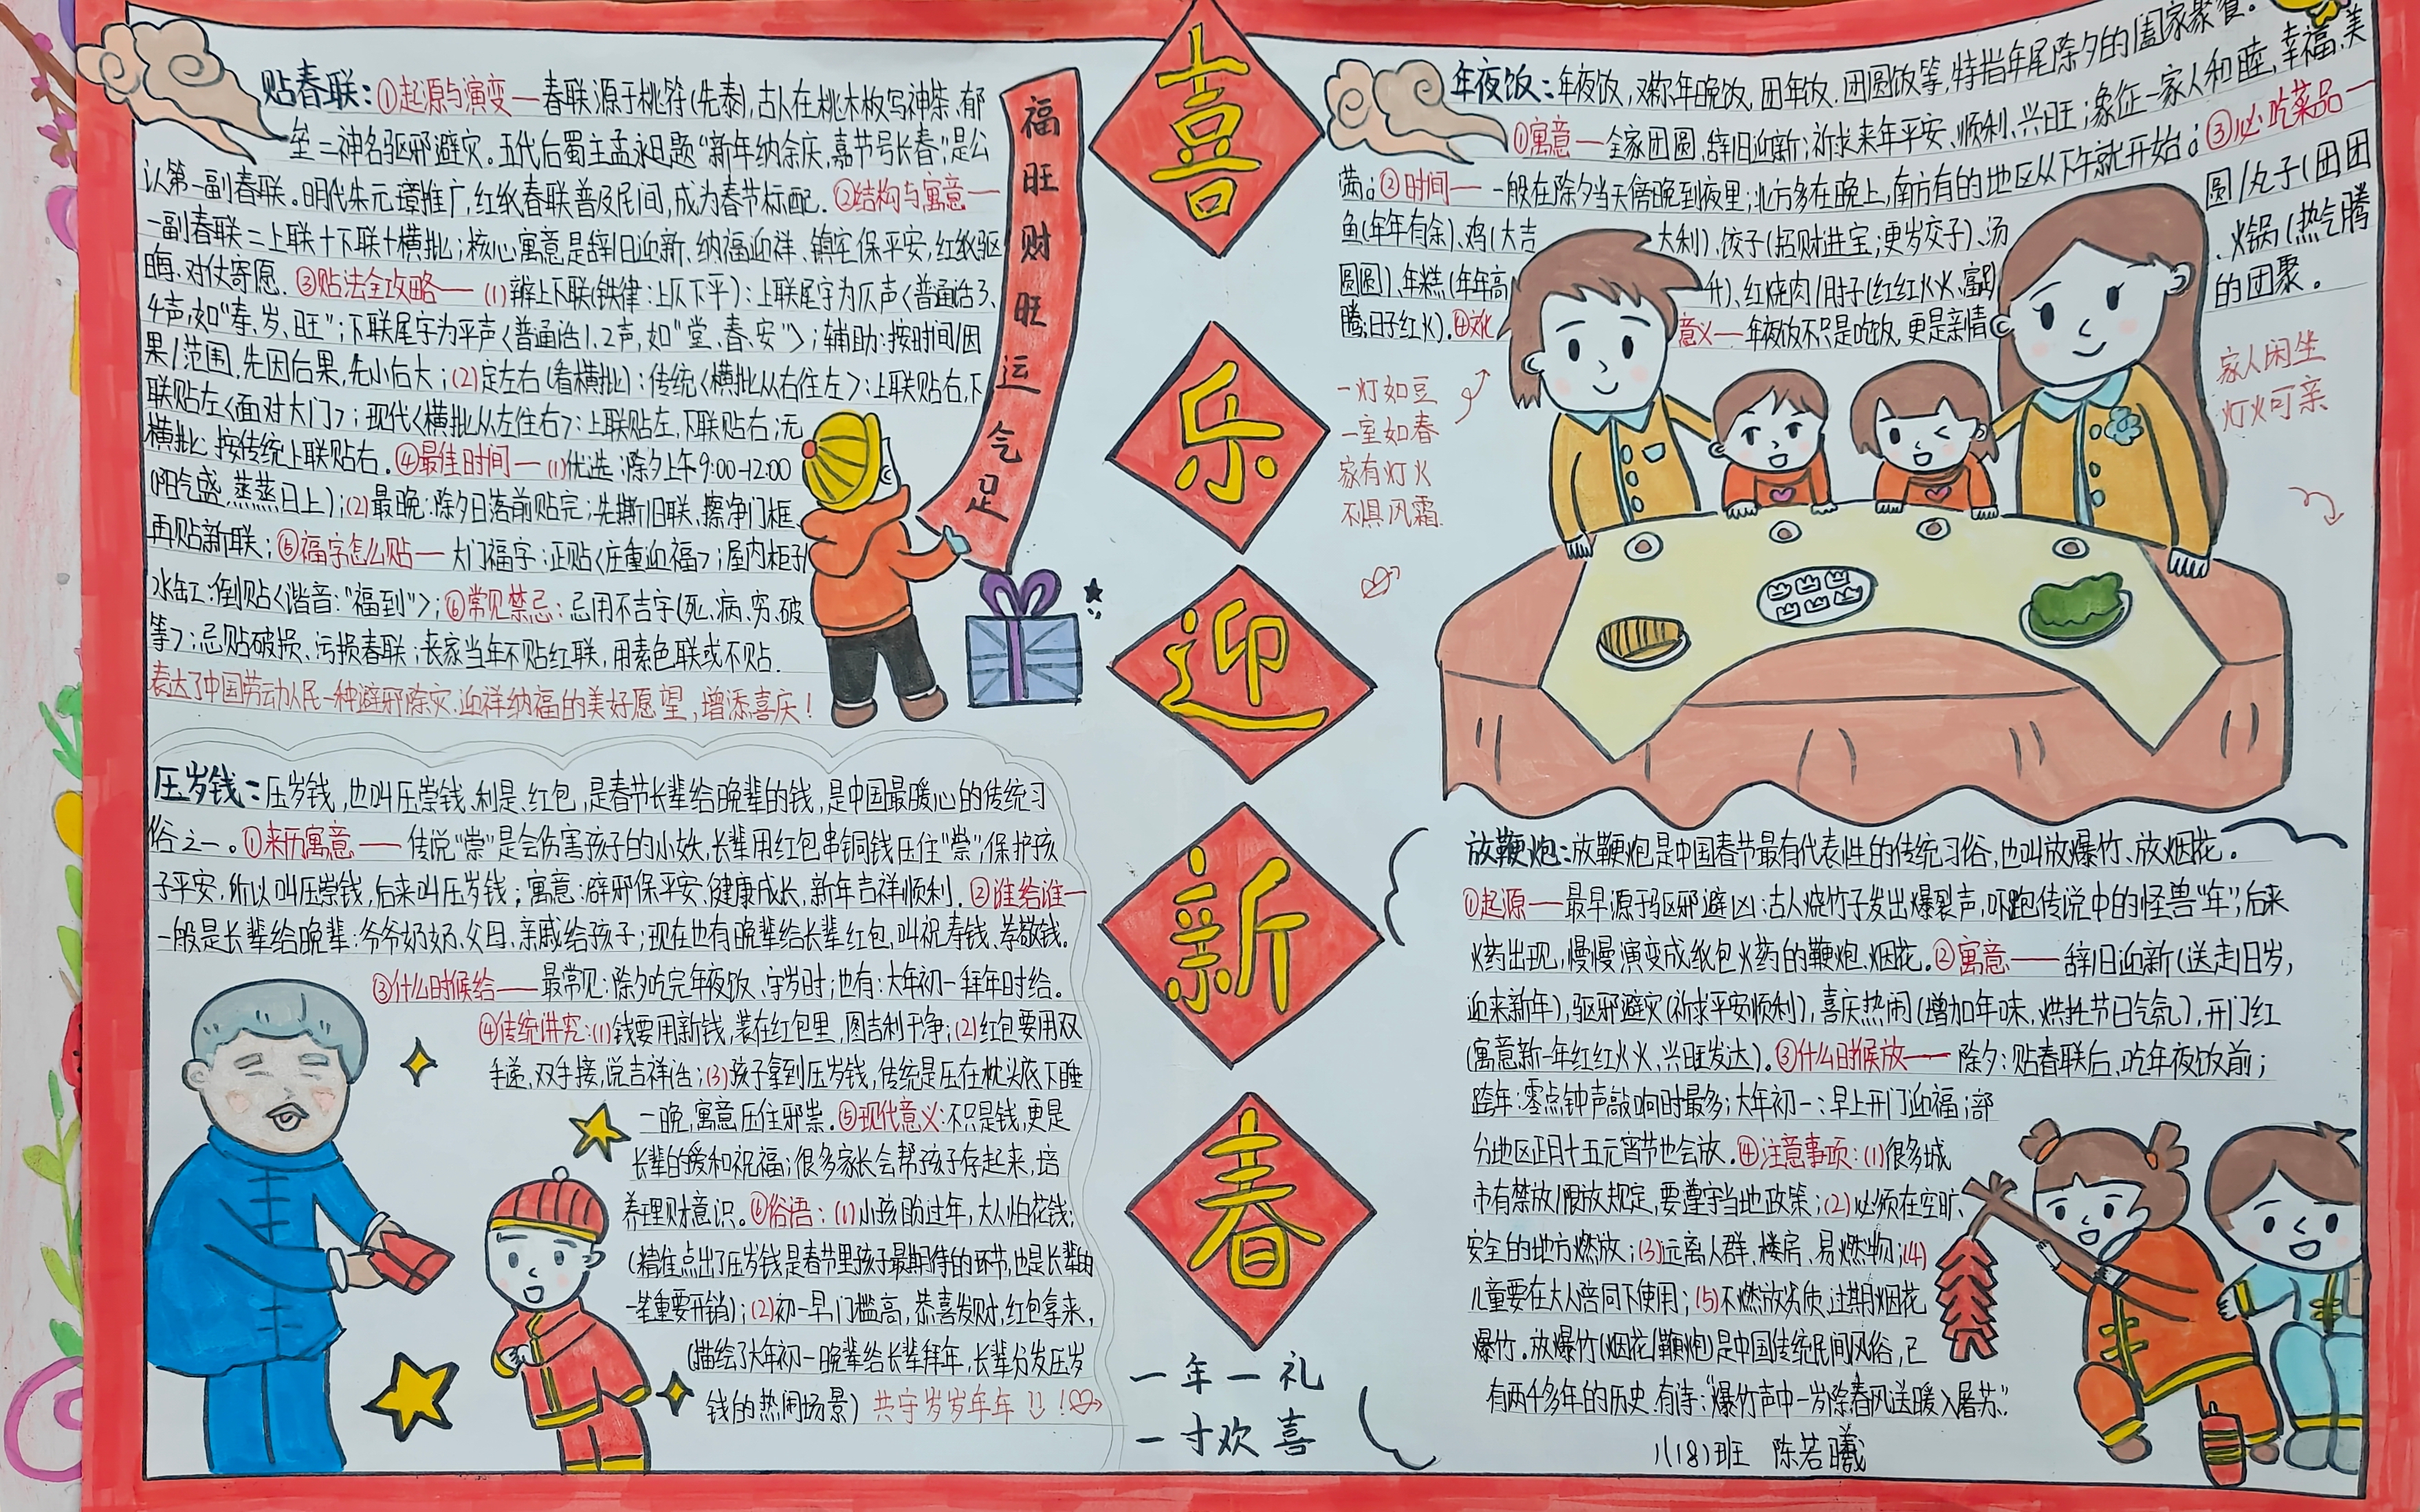 贴春联：①起源与演变—春联源于桃符(先秦),古人在桃木板写神荼、郁
垒二神名驱邪避灾。五代后蜀主孟永日题“新年纳余庆,嘉节号长春”,是公
认第一副春联。明代朱元璋推广,红纸春联普及民间,成为春节标配.②结构与寓意—
一副春联=上联+下联+横批;核心寓意是辞旧迎新、纳福迎祥、镇宅保平安,红纸驱
晦、对仗寄愿.③贴法全攻略—(1)辨上下联(铁律:上仄下平):上联尾字为仄声<普通话3、
4声,如“春、岁、旺”;下联尾字为平声<普通话1、2声,如“堂、春、安”>;辅助:按时间/因
果/范围,先因后果,先小后大;(2)定左右(看横批):传统<横批从右往左>:上联贴右,下
联贴左<面对大门>;现代<横批从左往右>:上联贴左,下联贴右;无
横批:按传统上联贴右.④最佳时间—(1)优选:除夕上午9:00-12:00
(阳气盛、蒸蒸日上);(2)最晚:除夕日落前贴完;先撕旧联、擦净门框、
再贴新联;⑤福字怎么贴—大门福字:正贴<庄重迎福>;屋内柜子/
水缸:倒贴<谐音:“福到”>;⑥常见禁忌:忌用不吉字(死、病、穷、破
等);忌贴破损、污损春联;丧家当年不贴红联,用素色联或不贴.
表达了中国劳动人民一种避邪除灾、迎祥纳福的美好愿望,增添喜庆!
福旺财旺运气足
压岁钱：压岁钱,也叫压祟钱、利是、红包,是春节长辈给晚辈的钱,是中国最暖心的传统习
俗之一。①来历寓意—传说“祟”是会伤害孩子的小妖,长辈用红包串铜钱压住“祟”,保护孩
子平安,所以叫压祟钱,后来叫压岁钱;寓意:辟邪保平安、健康成长、新年吉祥顺利.②谁给谁—
一般是长辈给晚辈:爷爷奶奶、父母、亲戚给孩子;现在也有晚辈给长辈红包,叫祝寿钱、孝敬钱.
③什么时候给—最常见:除夕吃完年夜饭、守岁时;也有:大年初一拜年时给。
④传统讲究:(1)钱要用新钱,装在红包里,图吉利干净;(2)红包要用双
手递,双手接,说吉祥话;(3)孩子拿到压岁钱,传统是压在枕头底下睡
一晚,寓意压住邪祟.⑤现代意义:不只是钱,更是
长辈的爱和祝福;很多家长会帮孩子存起来,培
养理财意识。⑥俗语:(1)小孩盼过年,大人怕花钱;
(精准点出了压岁钱是春节里孩子最期待的环节,也是长辈的
一笔重要开销);(2)初一早,门槛高,恭喜发财,红包拿来,
(描绘了大年初一晚辈给长辈拜年,长辈分发压岁
钱的热闹场景) 共守岁岁年年!
喜
乐
迎
新
春
一年一礼
一寸欢喜
年夜饭：年夜饭,又称年晚饭、团年饭、团圆饭等,特指年尾除夕的阖家聚餐。
①寓意—全家团圆,辞旧迎新;祈求来年平安、顺利、兴旺;象征一家人和睦,幸福,美
满。②时间—一般在除夕当天傍晚到夜里;北方多在晚上,南方有的地区从下午就开始。③必吃菜品—
鱼(年年有余)、鸡(大吉大利)、饺子(招财进宝;更岁交子)、汤圆/丸子(团团
圆圆)、年糕(年年高升)、红烧肉/肘子(红红火火、富足)、火锅(热气腾
腾;日子红火).④文化意义—年夜饭不只是吃饭,更是亲情的团聚。
一灯如豆
一室如春
家有灯火
不惧风霜.
家人闲坐
灯火可亲
放鞭炮：放鞭炮是中国春节最有代表性的传统习俗,也叫放爆竹、放烟花。
①起源—最早源于驱邪避凶:古人烧竹子发出爆裂声,吓跑传说中的怪兽“年”;后来
火药出现,慢慢演变成纸包火药的鞭炮、烟花.②寓意—辞旧迎新(送走旧岁,
迎来新年),驱邪避灾(祈求平安顺利),喜庆热闹(增加年味、烘托节日气氛),开门红
(寓意新一年红红火火、兴旺发达).③什么时候放—除夕:贴春联后、吃年夜饭前;
跨年:零点钟声敲响时最多;大年初一:早上开门迎福;部
分地区正月十五元宵节也会放.④注意事项:(1)很多城
市有禁放/限放规定,要遵守当地政策;(2)必须在空旷、
安全的地方燃放;(3)远离人群、楼房、易燃物;(4)
儿童要在大人陪同下使用;(5)不燃放劣质、过期烟花
爆竹.放爆竹(烟花/鞭炮)是中国传统民间风俗,已
有两千多年的历史.有诗:“爆竹声中一岁除,春风送暖入屠苏.”
八(18)班 陈若曦